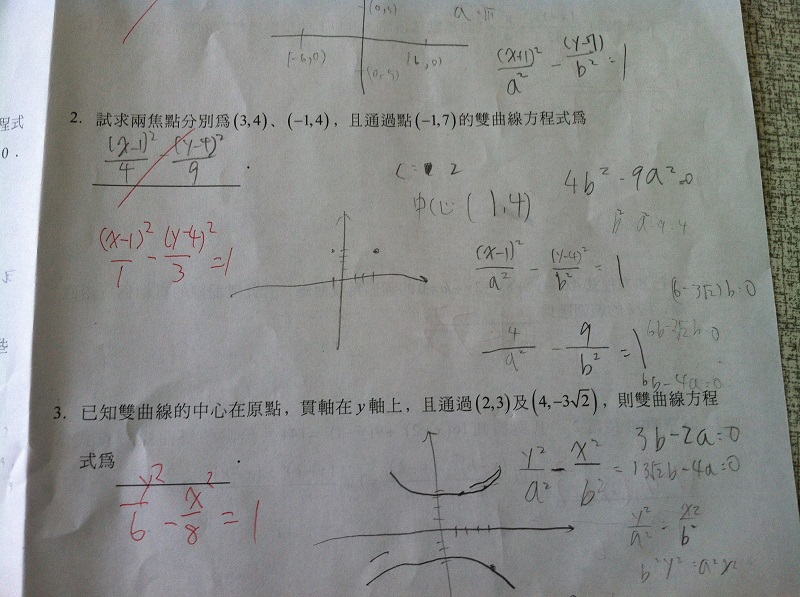 (0,5)
a=√11
(-6,0)
(6,0)
(0,-5)
(x+1)²/a² - (y-7)/b² = 1
程式
0.
2. 試求兩焦點分別爲(3,4)、(-1,4)，且通過點(-1,7)的雙曲線方程式爲
(x-1)²/4 - (y-4)²/9
.
c= 2
4b² - 9a²=0
中心 (1,4)
(x-1)²/1 - (y-4)²/3 = 1
(x-1)²/a² - (y-4)²/b² = 1
(6-3√2)b=0
4/a² - 9/b² = 1
6b-3√2b=0
6b-4a=0
些
3. 已知雙曲線的中心在原點，貫軸在y軸上，且通過(2,3)及(4,-3√2)，則雙曲線方程
式爲
.
y²/6 - x²/8 = 1
y²/a² - x²/b² = 1
3b-2a=0
3√2b-4a=0
y²/a² = x²/b²
b²y²=a²x²